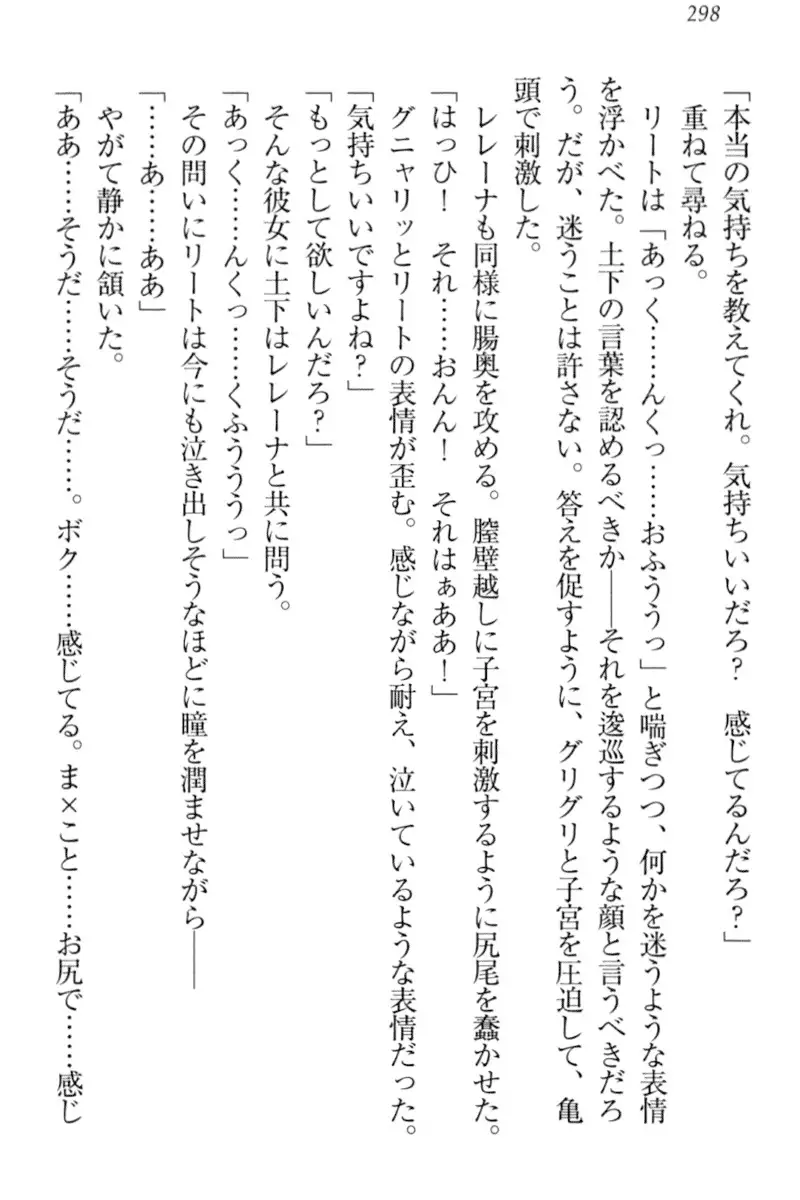 298
「本当の気持ちを教えてくれ。気持ちいいだろ？　感じてるんだろ？」
重ねて尋ねる。
リートは「あっく……んくっ……おふううっ」と喘ぎつつ、何かを迷うような表情
を浮かべた。土下の言葉を認めるべきか――それを逡巡するような顔と言うべきだろ
う。だが、迷うことは許さない。答えを促すように、グリグリと子宮を圧迫して、亀
頭で刺激した。
レレーナも同様に腸奥を攻める。膣壁越しに子宮を刺激するように尻尾を蠢かせた。
「はっひ！　それ……おんん！　それはぁああ！」
グニャリッとリートの表情が歪む。感じながら耐え、泣いているような表情だった。
「気持ちいいですよね？」
「もっとして欲しいんだろ？」
そんな彼女に土下はレレーナと共に問う。
「あっく……んくっ……くふうううっ」
その問いにリートは今にも泣き出しそうなほどに瞳を潤ませながら――
「……あ……ああ」
やがて静かに頷いた。
「ああ……そうだ……そうだ……。ボク……感じてる。ま×こと……お尻で……感じ